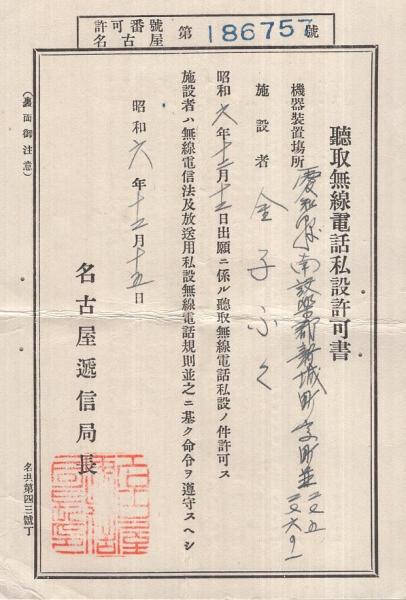 許可番號
名古屋
第186757號
聽取無線電話私設許可書
機器裝置場所 愛知縣南設樂郡新城町字町並
施設者 金子
昭和六年十二月十二日出願ニ係ル聽取無線電話私設ノ件許可ス
施設者ハ無線電信法及放送用私設無線電話規則並之ニ基ク命令ヲ遵守スヘシ
昭和六年十二月十五日
名古屋遞信局長
(裏面御注意)
名共第四三號丁